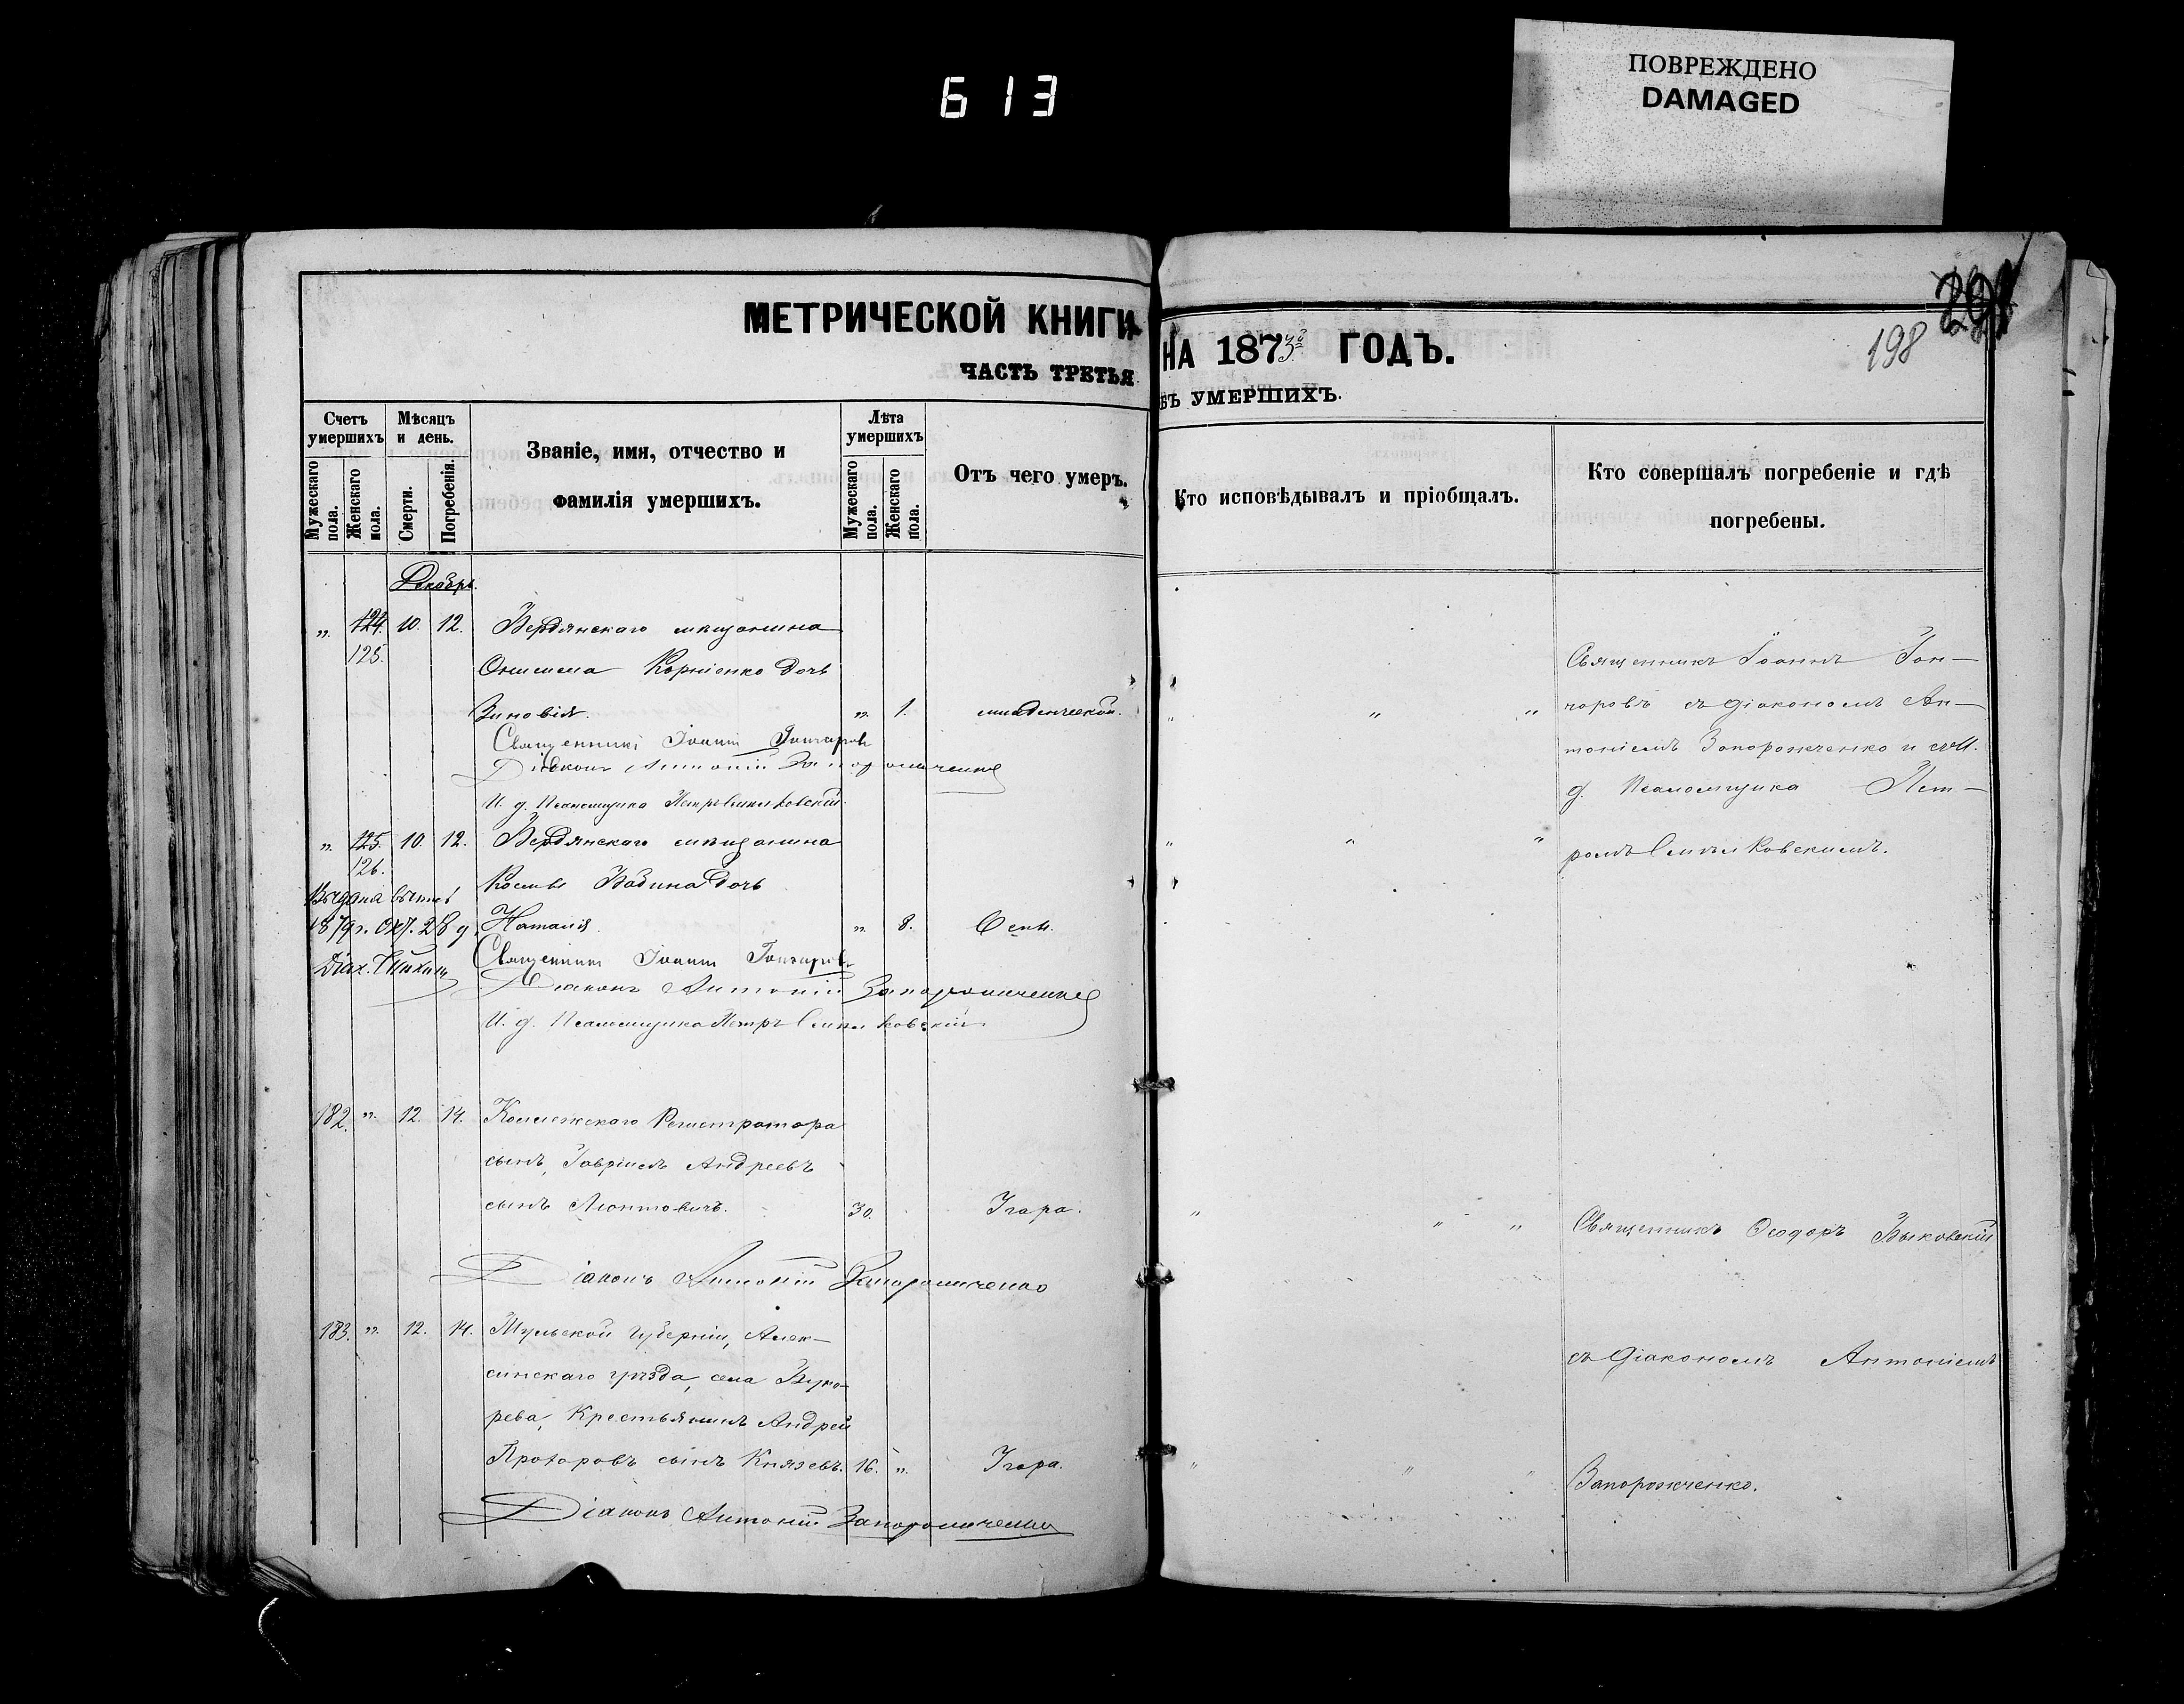 613
ПОВРЕЖДЕНО
DAMAGED
МЕТРИЧЕСКОЙ КНИГИ
НА 1873й ГОДЪ.
198
ЧАСТЬ ТРЕТЬЯ
УМЕРШИХЪ.
Счетъ умершихъ
Мужескаго пола.
Женскаго пола.
Мѣсяцъ и день.
Смерти.
Погребенія.
Званіе, имя, отчество и
фамилія умершихъ.
Лѣта умершихъ
Мужескаго пола.
Женскаго пола.
Отъ чего умеръ.
Кто исповѣдывалъ и пріобщалъ.
Кто совершалъ погребеніе и гдѣ
погребены.
Декабрь.
" 124. 10. 12. Бердянскаго мѣщанина
125.
Онисима Корніенко дочь
Зиновія. " 1. младенческой. " " "
Священникъ Іоаннъ Гончаровъ
Діаконъ Антоній Запорожченко
И. д. Псаломщика Петръ
" 125. 10. 12. Бердянскаго мѣщанина " " "
126.
Козьмы Бабина дочь
Выдана
1879 г. Окт. 28 д.
Наталія " 8. Оспы.
Священникъ Іоаннъ Гончаровъ
Діак.
Діаконъ Антоній Запорожченко
И. д. Псаломщика Петръ
Священникъ Іоаннъ Гон-
чаровъ съ діакономъ Ан-
тоніемъ Запорожченко и
д. Псаломщика Пет-
ромъ
182. " 12. 14. Коллежскаго Регистратора
сынъ, Гавріилъ Андреевъ
сынъ Леонтовичъ. 30. Угара. " " "
Діаконъ Антоній Запорожченко
183. " 12. 14. Тульской губерніи, Алек-
синскаго уѣзда, села
Крестьянинъ Андрей
Прохоровъ сынъ Князевъ. 16. " Угара. " " "
Діаконъ Антоній Запорожченко
Священникъ Ѳеодоръ Быковскій
съ діакономъ Антоніемъ
Запорожченко.